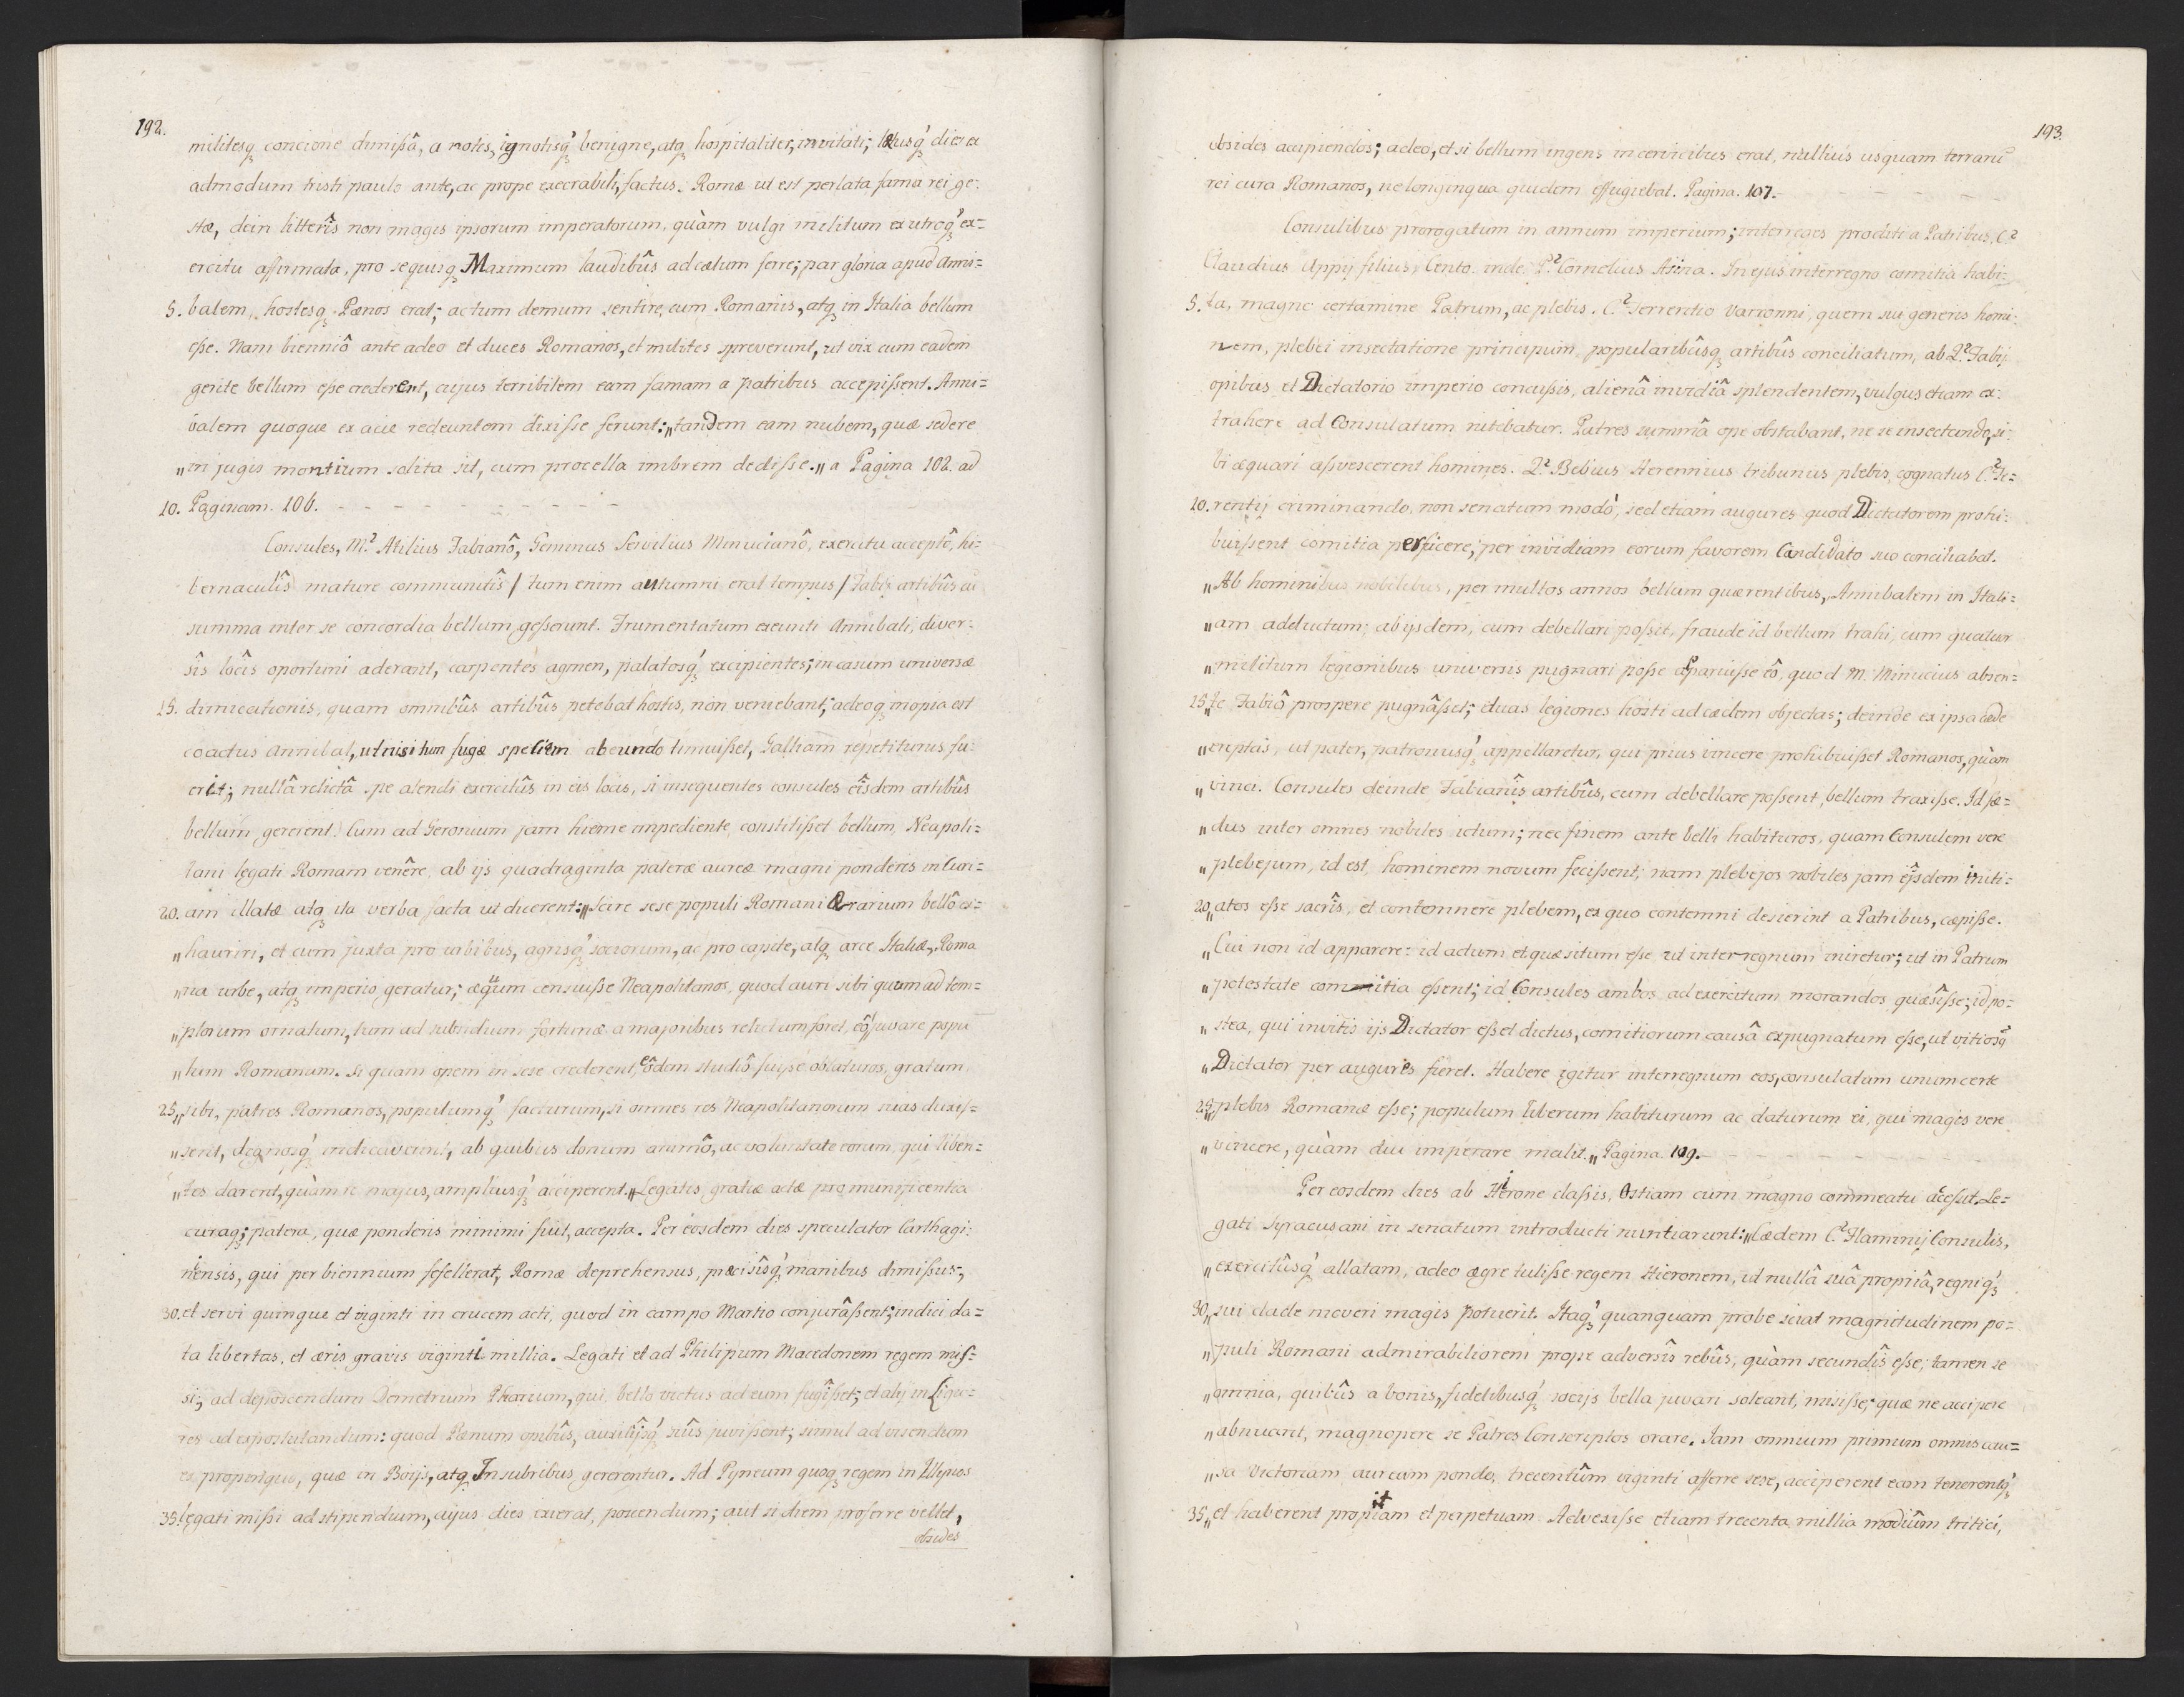 192.
militesq₃ concione dimißâ, a notis, ignotisq́₃ benigne, atq₃ hospitaliter, invitati; lætusq́₃ dies ex
admodum tristi paulo ante, ac prope execrabili, factus. Romæ ut est perlata fama rei ge-
stæ, dein litterîs non magis ipsorum imperatorum, quàm vulgi militum ex utroq́₃ ex=
ercitu affirmata, pro se quisq₃ Maximum laudibûs ad cælum ferre; par gloria apud Anni=
5. balem, hostesq₃ Pænos erat; ac tum demum sentire, cum Romanis, atq₃ in Italia bellum
eße. Nam bienniô ante adeo et duces Romanos, et milites spreverunt, ut vix cum eadem
gente bellum eße crederent, cujus terribilem eam famam a patribus accepißent. Anni=
balem quoque ex acie redeuntem dixiße ferunt: „tandem eam nubem, quæ sedere
„in jugis montium solita sit, cum procella imbrem dediße.„ a Pagina 102. ad
10. Paginam. 106. - - - - - - - -
Consules, M.² Atilius Fabianô, Geminus Servilius Minucianô, exercitu acceptô, hi=
bernaculîs mature communitîs / tum enim autumni erat tempus / Fabij artibûs cū
summa inter se concordia bellum geßerunt. Frumentatum exeunti Annibali, diver-
sîs locîs oportuni aderant, carpentes agmen, palatosq́₃ excipientes; in casum universæ
15. dimicationis, quam omnibûs artibûs petebat hostis, non veniebant; adeoq₃ inopia est
coactus Annibal, ut nisi tum fugæ speciem abeundo timuißet, Galliam repetiturus fu-
erit; nullâ relictâ spe alendi exercitûs in eis locis, si insequentes consules eîsdem artibûs
bellum gererent. Cum ad Geronium jam hieme impediente constitißet bellum, Neapoli=
tani legati Romam venêre, ab ijs quadraginta pateræ aureæ magni ponderis in Curi=
20. am illatæ atq₃ ita verba facta ut dicerent: „Scire sese populi Romani Ærarium bellô ex=
„hauriri, et cum juxta pro urbibus, agrisq́₃ sociorum, ac pro capite, atq₃ arce Italiæ, Roma
„na urbe, atq₃ imperio geratur; æquum censuiße Neapolitanos, quod auri sibi quum ad tem=
„plorum ornatum, tum ad subsidium fortunæ a majoribus relictum foret, eô juvare popu
„lum Romanum. Si quam opem in sese crederent, eôdem studiô fuiße oblaturos, gratum
25„ sibi, patres Romanos, populumq́₃ facturum, si omnes res Neapolitanorum suas duxis-
„sent, dignosq́₃ indicaverint, ab quibus donum animô, ac voluntate eorum, qui liben=
„tes darent, quàm re majus, ampliusq́₃ acciperent.„ Legatis gratiæ actæ pro munificentia
curaq₃; patera, quæ ponderis minimi fuit, accepta. Per eosdem dies speculator Carthagi-
niensis, qui per biennium fefellerat, Romæ deprehensus, præcisîsq́₃ manibus dimißus;
30. et servi quinque et viginti in crucem acti, quod in campo Martio conjurâßent; indici da=
ta libertas, et æris gravis viginti millia. Legati et ad Philipum Macedonem regem mis-
si; ad deposcendum Demetrium Pharium, qui bello victus ad eum fugîßet; et alij in Ligu-
res ad expostulandum: quod Pænum opibûs, auxilîjsq́₃ suîs juvißent; simul ad visendum
ex propinquo, quæ in Boijs, atq₃ Insubribus gererentur. Ad Pyneum quoq₃ regem in Illyrios
35. legati mißi ad stipendium, cujus dies exierat, poscendum; aut si diem proferre vellet,
obsides
193.
obsides accipiendos; adeo, et si bellum ingens in cervicibus erat, nullius usquam terrarū
rei cura Romanos, ne longinqua quidem effugiebat. Pagina. 107. - - - -
Consulibus prorogatum in annum imperium; interreges proditi a Patribus, C.²
Claudius Appij filius, Cento. inde P.² Cornelius Asina. In ejus interregno comitia habi-
5. ta, magno certamine Patrum, ac plebis. C.² Terrentio Varronni, quem sui generis homi-
nem, plebei insectatione principum, popularibûsq₃ artibûs conciliatum, ab Q.² Fabij
opibus et Dictatorio imperio concußis, alienâ invidiâ splendentem, vulgus etiam ex-
trahere ad Consulatum nitebatur. Patres summâ ope obstabant, ne se insectando, si-
bi æquari aßvescerent homines. Q.² Bebius Herennius tribunus plebis, cognatus C.² Te=
10. rentij criminando, non senatum modò, sed etiam augures quod Dictatorem prohi-
buißent comitia perficere; per invidiam eorum favorem Candidato suo conciliabat.
„Ab hominibus nobilibus, per multos annos bellum quærentibus, Annibalem in Itali=
„am adductum; ab ijsdem, cum debellari poßit, fraude id bellum trahi, cum quatuor
„militum legionibus universis pugnari poße apparuiße eô, quod M. Minucius absen=
15„te Fabiô prospere pugnâßet; duas legiones hosti ad cædem objectas; deinde ex ipsa cæde
„ereptas, ut pater, patronusq́₃ appellaretur, qui prius vincere prohibuißet Romanos, quàm
„vinci. Consules deinde Fabianîs artibûs, cum debellare poßent, bellum traxiße. Id fæ=
„dus inter omnes nobiles ictum; nec finem ante belli habituros, quam Consulem vere
„plebejum, id est, hominem novum fecißent; nam plebejos nobiles jam eîsdem initi=
20„atos eße sacrîs, et contemnere plebem, ex quo contemni desierint a Patribus, cæpiße.
„Cui non id apparere: id actum et quæsitum eße, ut interregnum iniretur; ut in Patrum
„potestate comitia eßent; id Consules ambos ad exercitum morandos quæsîße; id po=
„stea, qui invitis ijs Dictator eßet dictus, comitiorum causâ expugnatum eße, ut vitiosq̄
„Dictator per augures fieret. Habere igitur interregnum eos, consulatum unum certe
25„plebis Romanæ eße; populum liberum habiturum ac daturum ei, qui magis vere
„vincere, quàm diu imperare malit.„ Pagina. 109. - - - -
Per eosdem dies ab Hierone claßis, Ostiam cum magno commeatu acceßit. Le=
gati Siracusani in senatum introducti nuntiarunt: „Cædem C.² Flaminij Consulis,
„exercitûsq́₃ allatam, adeo ægre tuliße regem Hieronem, ut nullâ suâ propriâ, regniq́₃
30„sui clade moveri magis potuerit. Itaq́₃ quanquam probe sciat magnitudinem po=
„puli Romani admirabiliorem prope adversîs rebûs, quàm secundîs eße; tamen se
„omnia, quibûs a bonis, fidelibusq́₃ socijs bella juvari soleant, misiße; quæ ne accipere
„abnuant, magnopere se Patres Conscriptos orare. Iam omnium primum omnis cau=
„sa Victoriam auream pondo, trecentûm viginti afferre sese, acciperent eam tenerentq́₃
35„et haberent propitiam et perpetuam. Advexiße etiam trecenta millia modiûm tritici,